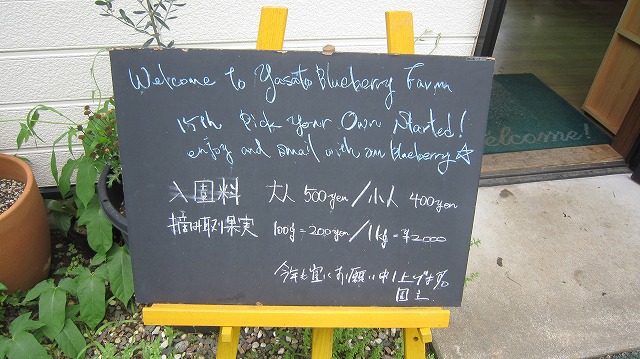 Welcome to Yasato Blueberry Farm
15th Pick Your Own Started!
enjoy and smail with our blueberry☆
入園料 大人 500yen/小人 400yen
摘み取り果実 100g=200yen/1kg=¥2000
今年も宜しくお願い申し上げます。
園主
Welcome!